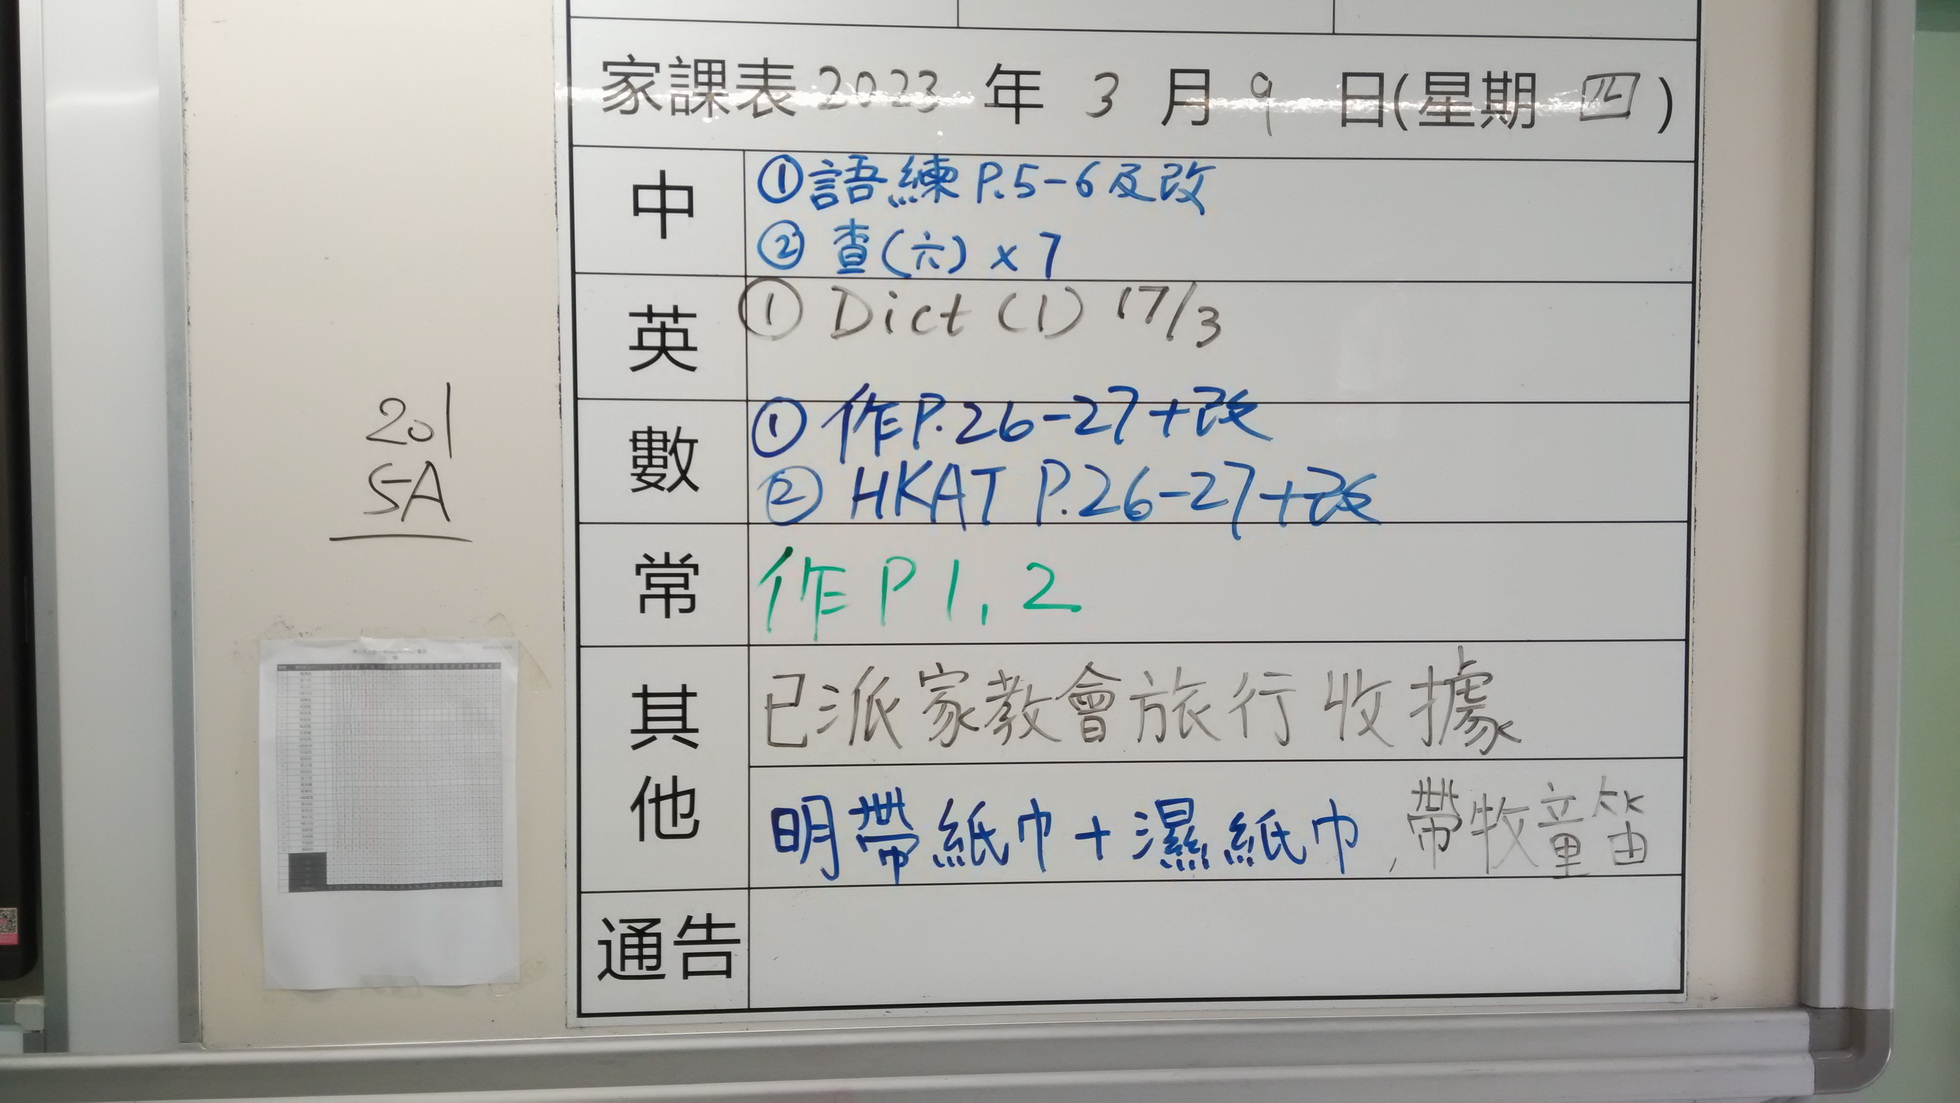 家課表 2023 年 3 月 9 日(星期 四)
中
①語練 P.5-6及改
② 查(六) x 7
英
① Dict (1) 17/3
數
① 作P.26-27+改
② HKAT P.26-27+改
常
作 P 1, 2
其他
已派家教會旅行收據
明帶紙巾+濕紙巾,帶牧童笛
通告
201
5A